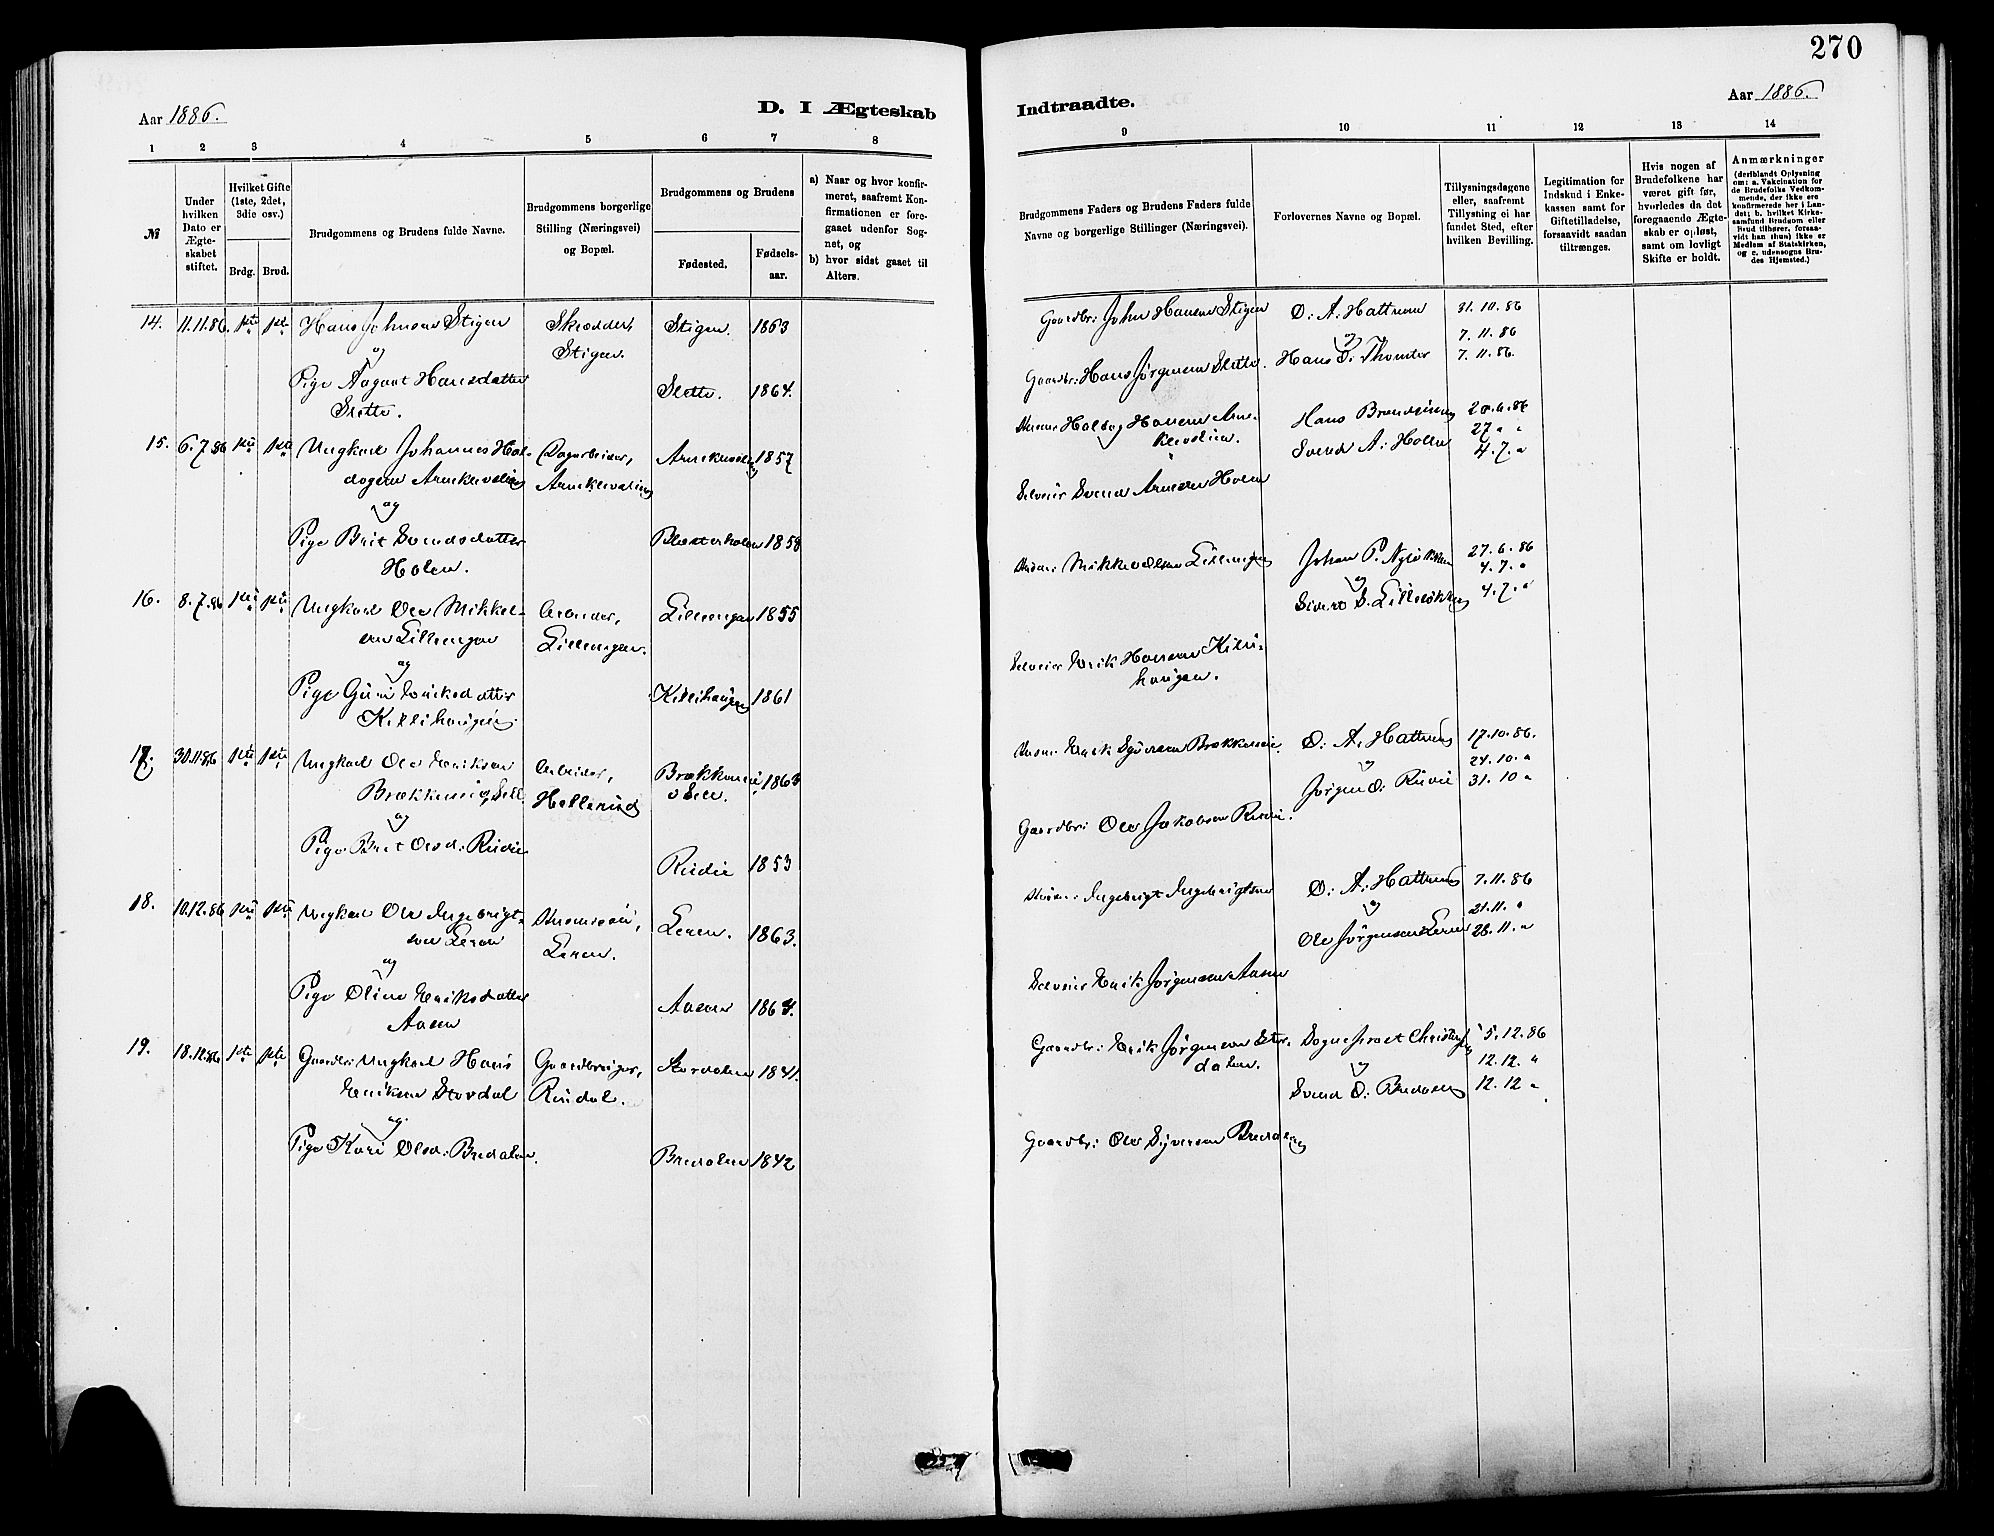 270
Aar 1886.
D. I Ægteskab
Indtraadte.
Aar 1886.
1 2 3 4 5 6 7 8
9 10 11 12 13 14
№
Under hvilken Dato er Ægteskabet stiftet.
Hvilket Gifte (1ste, 2det, 3die osv.)
Brdg. Brud.
Brudgommens og Brudens fulde Navne.
Brudgommens borgerlige Stilling (Næringsvei) og Bopæl.
Brudgommens og Brudens
Fødested. Fødselsaar.
a) Naar og hvor konfirmeret, saafremt Konfirmationen er foregaaet udenfor Sognet, og
b) hvor sidst gaaet til Alters.
Brudgommens Faders og Brudens Faders fulde Navne og borgerlige Stillinger (Næringsvei).
Forlovernes Navne og Bopæl.
Tillysningsdagene eller, saafremt Tillysning ei har fundet Sted, efter hvilken Bevilling.
Legitimation for Indskud i Enkekassen samt for Giftetilladelse, forsaavidt saadan tiltrænges.
Hvis nogen af Brudefolkene har været gift før, hvorledes da det foregaaende Ægteskab er opløst, samt om lovligt Skifte er holdt.
Anmærkninger (deriblandt Oplysning om: a. Vakcination for de Brudefolks Vedkommende, der ikke ere konfirmerede her i Landet; b. hvilket Kirkesamfund Brudgom eller Brud tilhører, forsaavidt han (hun) ikke er Medlem af Statskirken, og c. udensogns Brudes Hjemsted.)
14. 11.11.86. 1ste 1ste Hans Johnsen Stigen Skrædder, Stigen. Stigen. 1863
og
Pige Aagaat Hansdatter Slette. Slette. 1864.
Gaardbr: John Hansen Stigen O. A. Hattrem 31.10.86
og 7.11.86
Gaardbr: Hans Jørgensen Slette. Hans O. Thomter 7.11.86.
15. 6.7.86 1ste 1ste Ungkarl Johannes Haldogsen Dagarbeider, 1857
og
Pige Brit Svendsdatter Holen. 1858
Hans 20.6.86
Svend A. Holen 27 " "
4.7. "
Selveier Svend Arnesen Holen
16. 8.7.86 1ste 1ste Ungkarl Ole Mikkelsen Lillengen Arbeider, Lillengen. Lillengen 1855
og
Pige Guri Eriksdatter Killihaugen. Killihaugen 1861
Mikkel Olsen Lillengen Johan P. 27.6.86
og 4.7. "
Sivert S. 4.7. "
Selveier Erik Hansen Killihaugen.
17. 30.11.86 1ste 1ste Ungkarl Ole Eriksen Brækkenei, Sell. Arbeider, Hellerud 1863
og
Pige Brit Olsd: 1853
Husm: Erik Syversen O. A. Hattrem 17.10.86.
og 24.10. "
Jørgen O. 31.10 "
Gaardbr: Ole Jakobsen
18. 10.12.86 1ste 1ste Ungkarl Ole Ingebrigtsen Leren Leren. Leren. 1863.
og
Pige Oline Eriksdatter Aasen Aasen 1864.
Husm: Ingebrigt Ingebrigtsen O. A. Hattrem 7.11.86
og 21.11. "
Ole Jørgensen Leren 28.11. "
Selveier Erik Jørgensen Aasen
19. 18.12.86 1ste 1ste Gaardbr: Ungkarl Hans Eriksen Stordal Gaardbruger, Rindal. Stordalen 1841.
og
Pige Kari Olsd: Bredalen. Bredalen 1842
Gaardbr: Erik Jørgensen Stordalen. Sogneprest 5.12.86
og 12.12. "
Svend O. Bredalen 12.12 "
Gaardbr: Ole Syversen Bredalen